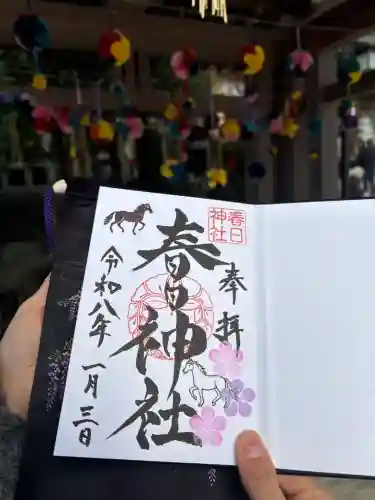 春日
神社
奉拝
春日神社
令和八年
一月三日